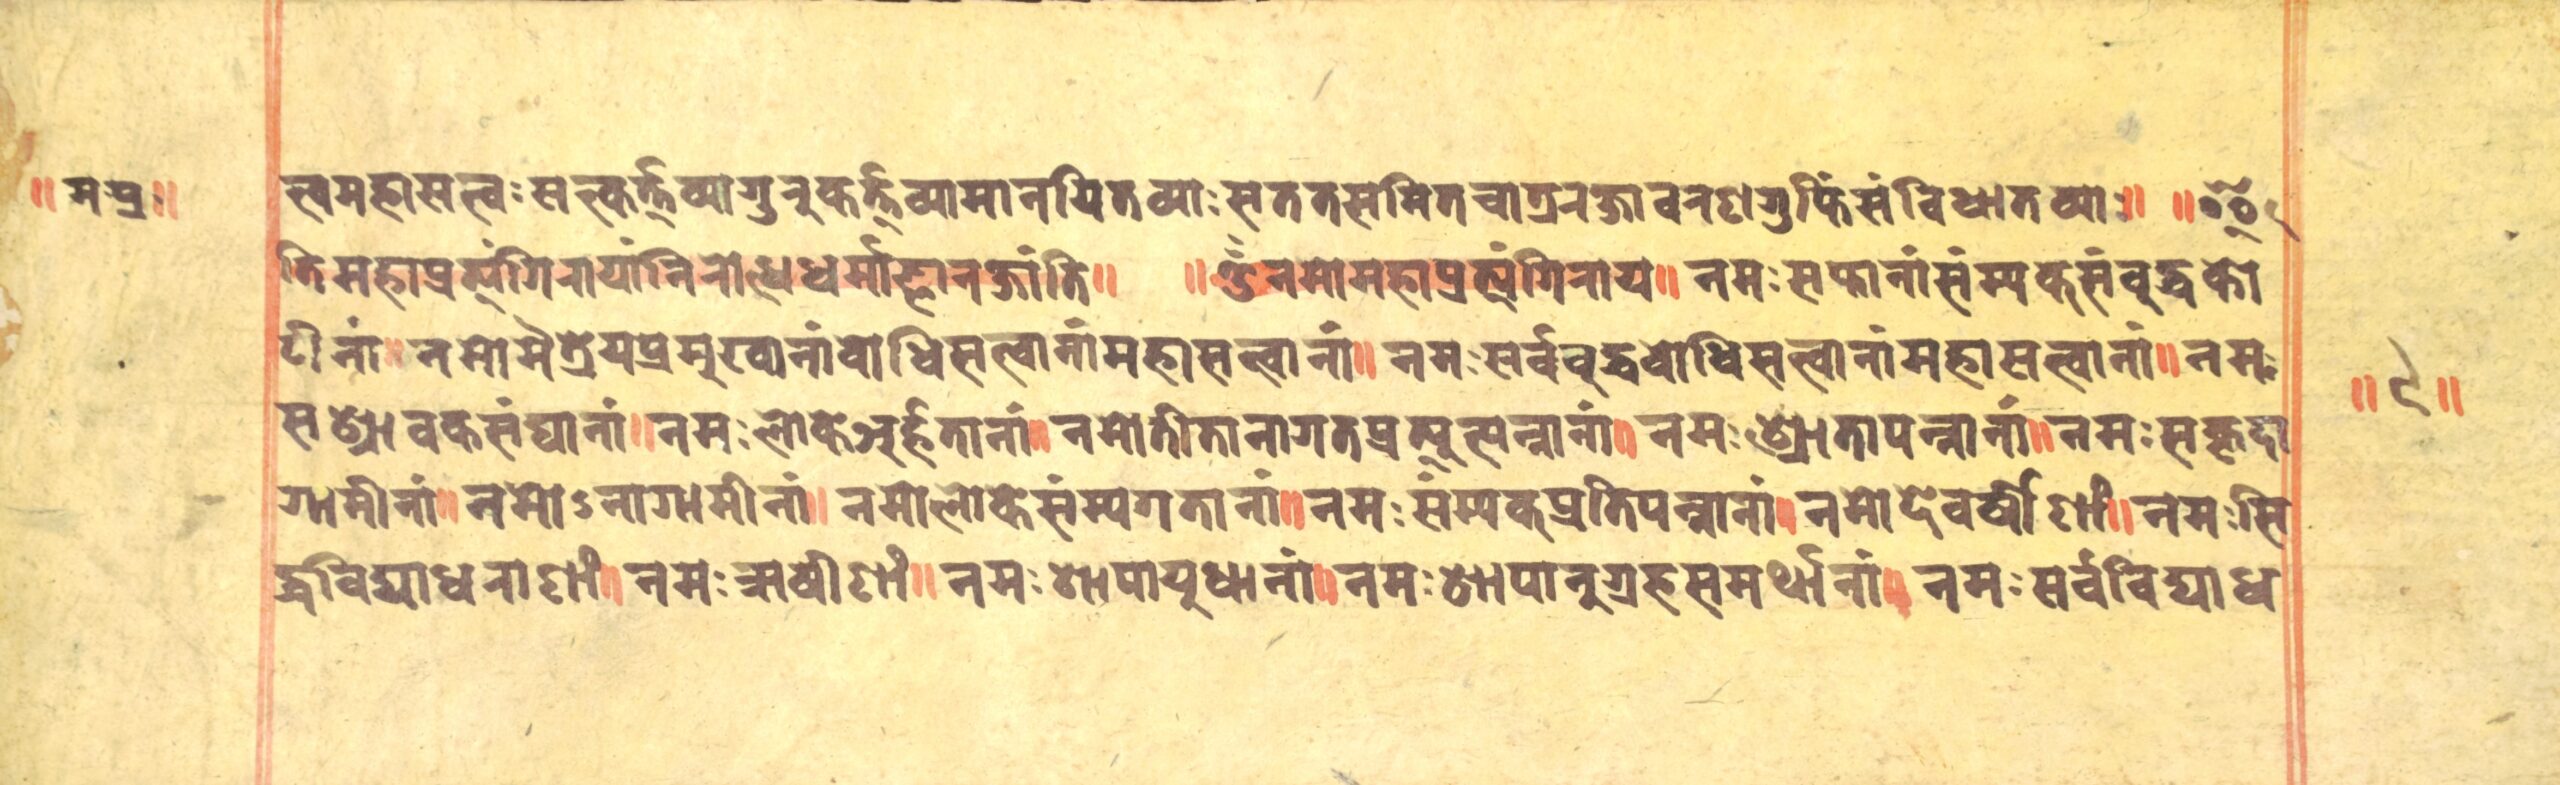 ॥मप्र॥
त्त्वमहासत्त्वः सत्कर्त्तव्यागुरुकर्त्तव्यामानयितव्याः सततसमितचात्ररक्षावरणगुप्तिंसंविधातव्याः॥ ॥
तिमहाप्रत्यंगिरायांनिरोधधर्मा रक्षांति॥ ॥ॐनमोमहाप्रत्यंगिराय॥ नमः सप्तानांसंम्यक्संबुद्धको
टीनां॥ नमोमैत्रेयप्रमुखानांबोधिसत्त्वानांमहासत्त्वानां॥ नमः सर्वबुद्धबोधिसत्त्वानांमहासत्त्वानां॥ नमः
सश्रावकसंघानां॥ नमः लोकेअर्हतानां॥ नमोतीतानागतप्रत्युत्पन्नानां॥ नमः श्रोतापन्नानां॥ नमः सकृदा
गामीनां॥ नमोऽनागामीनां॥ नमोलोकेसंम्यगतानां॥ नमः संम्यक्प्रतिपन्नानां॥ नमोदेवर्षीणां॥ नमः सि
द्धविद्याधराणां॥ नमः ऋषीणां॥ नमः शापायुधानां॥ नमः शापानुग्रहसमर्थानां॥ नमः सर्वविद्याध
॥९॥